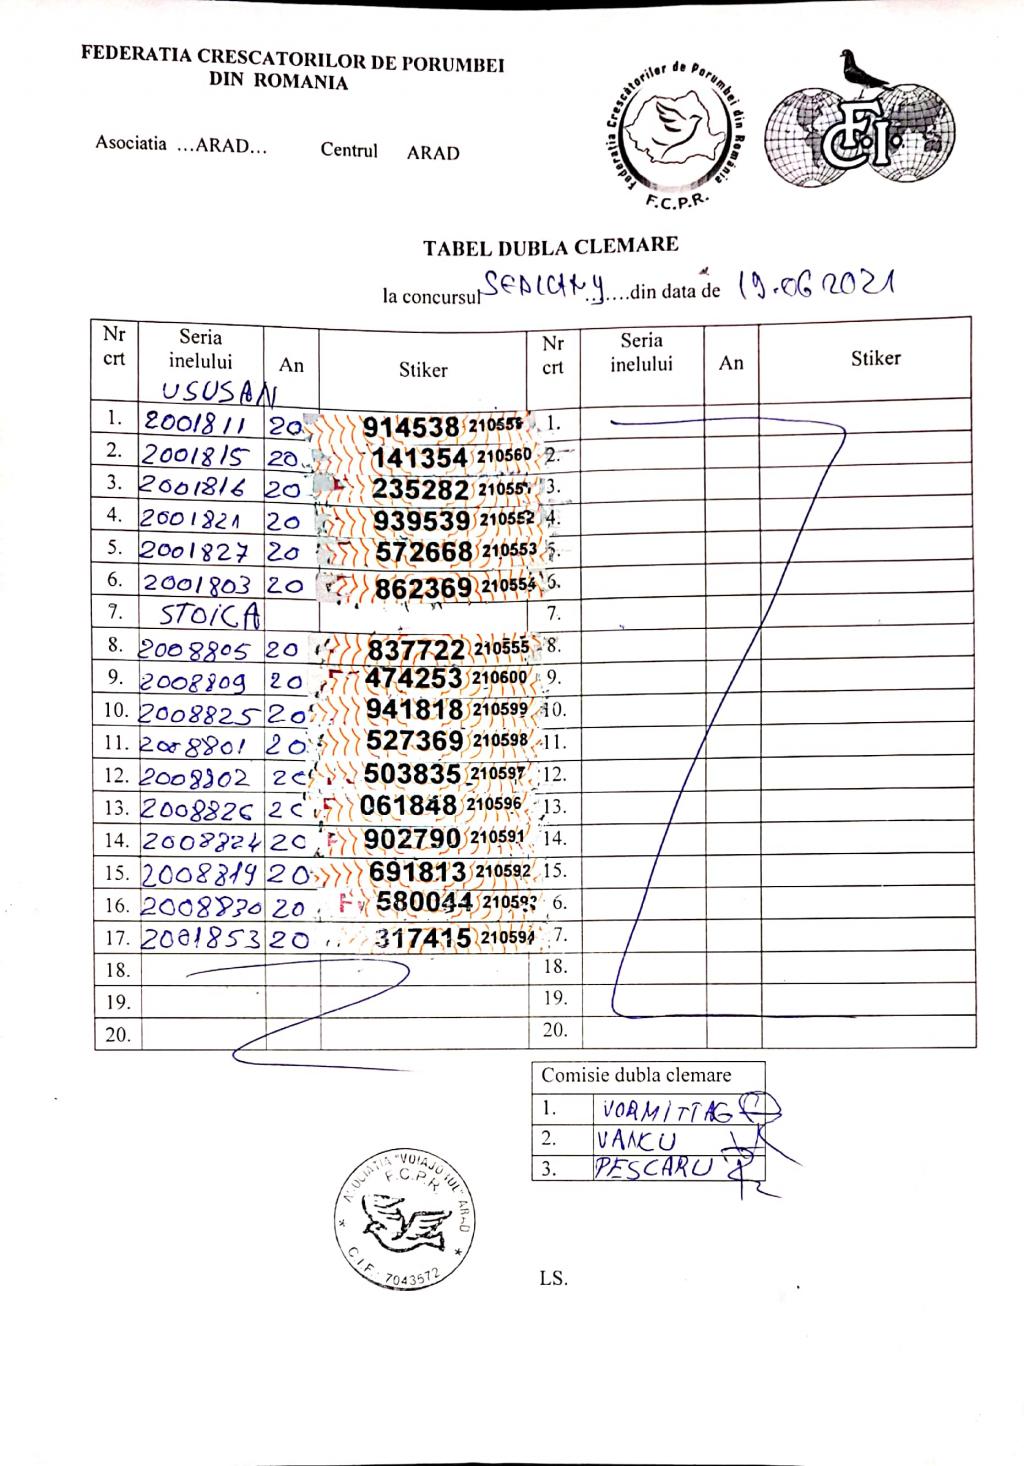 FEDERATIA CRESCATORILOR DE PORUMBEI
DIN ROMANIA
Federația Crescătorilor de Porumbei din România
F.C.P.R.
F.C.I.
Asociatia ...ARAD... Centrul ARAD
TABEL DUBLA CLEMARE
la concursul SEDLCANY....din data de 19.06 2021
Nr crt Seria inelului An Stiker Nr crt Seria inelului An Stiker
USUSAN
1. 2001811 20 914538 1.
2. 2001815 20 141354 210560 2.
3. 2001816 20 235282 3.
4. 2001821 20 939539 210552 4.
5. 2001827 20 572668 210553 5.
6. 2001803 20 862369 210554 6.
7. STOICA 7.
8. 2008805 20 837722 210555 8.
9. 2008809 20 474253 210600 9.
10. 2008825 20 941818 210599 10.
11. 2008801 20 527369 210598 11.
12. 2008802 20 503835 210597 12.
13. 2008826 20 061848 210596 13.
14. 2008824 20 902790 210591 14.
15. 2008819 20 691813 210592 15.
16. 2008830 20 580044 210593 6.
17. 2001853 20 317415 210594 7.
18. 18.
19. 19.
20. 20.
Comisie dubla clemare
1. VORMITTAG
2. VANCU
3. PESCARU
ASOCIATIA "VOIAJORUL" ARAD
F.C.P.R.
C.I.F. 7043572
LS.